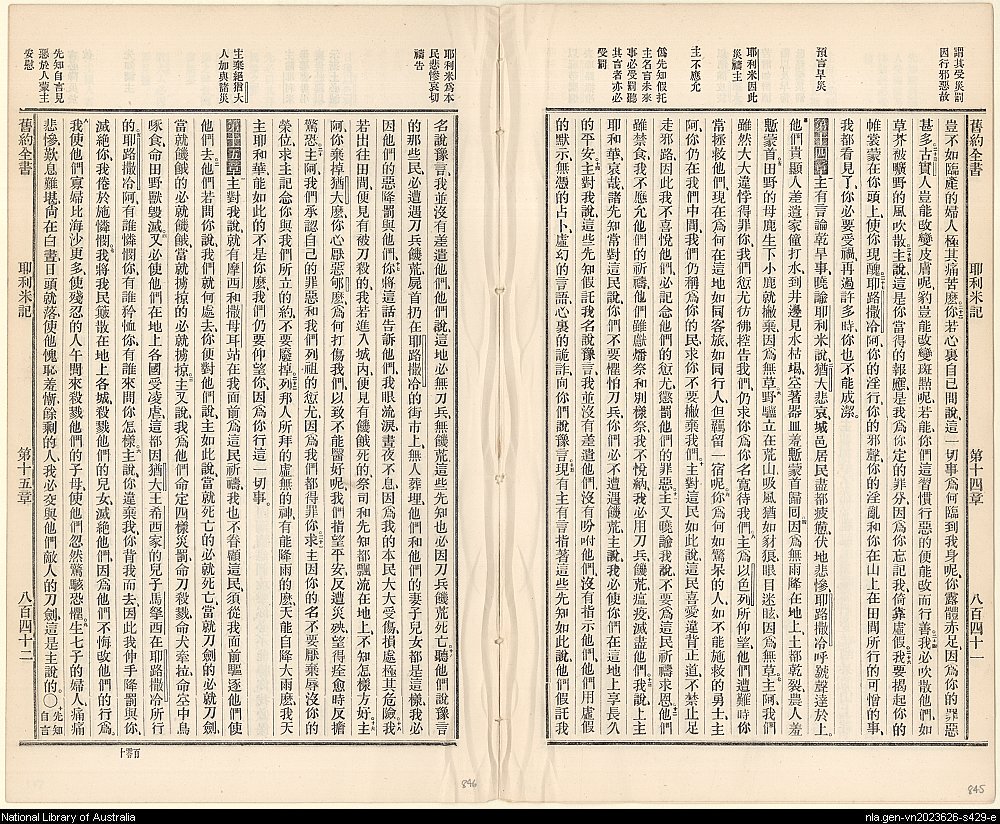 謂其受災罰
因行邪惡故
預言旱災
耶利米因此
災禱主
主不應允
僞先知假托
主名言未來
事必受罰聽
其言者亦必
受罰
舊約全書 耶利米記 第十四章 八百四十一
豈不如臨產的婦人極其痛苦麽、你若心裏自己問說、這一切事爲何臨到我身呢、你露體赤足、因爲你的罪惡
甚多、古實人豈能改變皮膚呢、豹豈能改變斑點呢、若能、你們這習慣行惡的便能改而行善、我必吹散他們、如
草芥被曠野的風吹散、主說、這是你當得的報應、是我爲你定的罪分、因爲你忘記我、倚靠虛假、我要揭起你的
帷裳蒙在你頭上、使你現醜、耶路撒冷阿、你的淫行、你的邪聲、你的淫亂、和你在山上在田間所行的可憎的事、
我都看見了、你必要受禍、再過許多時、你也不能成潔。
第十四章 主有言論乾旱事、曉諭耶利米說、猶大悲哀、城邑居民盡都疲憊、伏地悲慘、耶路撒冷呼號聲達於上。
他們貴顯人差遣家僮打水、到井邊見水枯竭、空著器皿羞慙蒙首歸回、因爲無雨降在地上、土都乾裂、農人羞
慙蒙首、田野的母鹿生下小鹿就撇棄、因爲無草、野驢立在荒山、吸風猶如豺狼、眼目迷眩、因爲無草、主阿、我們
雖然大大違悖得罪你、我們愆尤彷彿控告我們、仍求你爲你名寬待我們、主爲以色列所仰望、他們遭難時你
常拯救他們、現在爲何在這地如同客旅、如同行人但羈留一宿呢、你爲何如驚呆的人、如不能施救的勇士、主
阿、你仍在我們中間、我們仍稱爲你的民、求你不要撇棄我們、主對民如此說、這民喜愛違背正道、不禁止足
走邪路、因此我不喜悅他們、必記念他們的愆尤、懲罰他們的罪惡、主又曉諭我說、不要爲這民祈禱求恩、他們
雖禁食、我不應允他們的祈禱、他們雖獻燔祭和別樣祭、我不悅納、我必用刀兵、饑荒、瘟疫滅盡他們、我說、上主
耶和華、哀哉、諸先知常對這民說、你們不要懼怕刀兵、你們必不遭遇饑荒、主說、我必使你們在這地上享長久
的平安、主對我說、這些先知假託我名說豫言、我並沒有差遣他們、沒有吩咐他們、沒有指示他們、他們用虛假
的默示、無憑的占卜、虛幻的言語、心裏的詭詐、向你們說豫言、現有主有言指著這些先知如此說、他們假託我
耶利米爲本
民悲慘哀切
禱告
主棄絕猶大
人加與諸災
先知自言見
惡於人蒙主
安慰
名說豫言、我並沒有差遣他們、他們說、這地必無刀兵、無饑荒、這些先知也必因刀兵饑荒死亡、聽他們說豫言
的那些民、必遭遇刀兵饑荒、屍首扔在耶路撒冷的街市上、無人葬埋、他們和他們的妻子兒女都是這樣、我必
因他們的惡降罰與他們、你將這話告訴他們、我眼流淚、晝夜不息、因爲我的本民大大受傷、損處極其危險、我
若出往田間、便見有被刀殺的、我若進入城內、便見有饑餓死的、祭司和先知都飄流在地上、不知怎樣方好、主
阿、你棄掉猶大麽、你心厭惡郇麽、爲何打傷我們、以致不能醫好呢、我們指望平安、反遭災殃、望得痊愈時反擔
驚恐、主阿、我們承認自己的罪惡、和我們列祖的愆尤、因爲我們都得罪你、求主因你的名不要厭棄、辱沒你的
榮位、求主記念你與我們所立的約、不要廢掉、列邦人所拜的虛無的神、有能降雨的麽、天能自降大雨麽、我天
主耶和華、能如此的不是你麽、我們仍要仰望你、因爲你行這一切事。
第十五章 主對我說、就有摩西和撒母耳站在我面前、爲這民祈禱、我也不眷顧這民、須從我面前驅逐他們、使
他們去、他們若問你說、我們就何處去、你便對他們說、主如此說、當就死亡的必就死亡、當就刀劍的必就刀劍、
當就饑餓的必就饑餓、當就擄掠的必就擄掠、主又說、我爲他們命定四樣災罰、命刀殺戮、命犬牽拉、命空中鳥
啄食、命田野獸毀滅、又必使他們在地上各國受凌虐、這都因猶大王希西家的兒子馬拏西在耶路撒冷所行
的、耶路撒冷阿、有誰憐憫你、有誰矜恤你、有誰來問你怎樣、主說、你違棄我、你背我而去、因此我伸手降罰與你、
滅絕你、我倦於施憐憫、我將我民簸散在地上各城、殺戮他們的兒女、滅絕他們、因爲他們不悔改他們的行爲。
我使他們寡婦比海沙更多、使殘忍的人午間來殺戮他們的子母、使他們忽然驚駭恐懼、生七子的婦人、痛痛
悲慘、歎息難堪、尙在白晝、日頭就落、使他愧恥羞慚、餘剩的人、我必交與他們敵人的刀劍、這是主說的。〇先知自言
舊約全書 耶利米記 第十五章 八百四十二
百零十
846
845
National Library of Australia
nla.gen-vn2023626-s429-e